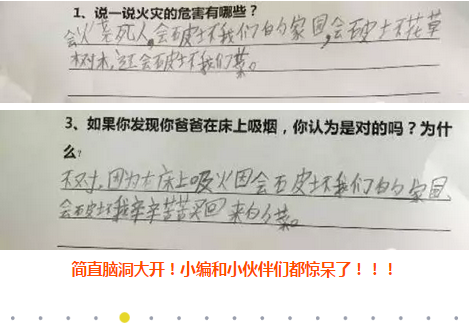 1、说一说火灾的危害有哪些？
会死人，会破坏我们的家园，会破坏花草
树木，还会破坏我们菜。
3、如果你发现你爸爸在床上吸烟，你认为是对的吗？为什
么？
不对，因为在床上吸烟会破坏我们的家园，
会破坏我辛辛苦苦买回来的菜。
简直脑洞大开！小编和小伙伴们都惊呆了！！！